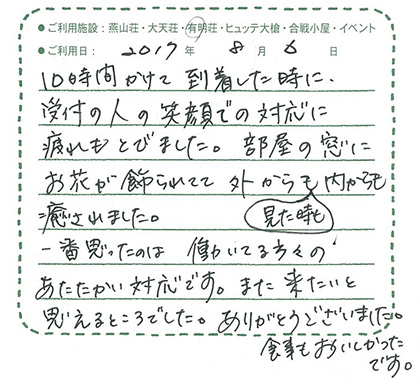 ●ご利用施設：燕山荘・大天荘・有明荘・ヒュッテ大槍・合戦小屋・イベント
●ご利用日： 2017 年 8 月 6 日
10時間かけて 到着した時に、
受付の人の笑顔での対応に
疲れもとびました。部屋の窓に
お花が飾られてて 外からも 内からも
癒されました。 見た時も
一番思ったのは 働いてる方々の
あたたかい対応です。また 来たいと
思えるところでした。ありがとうございました。
食事もおいしかった
です。